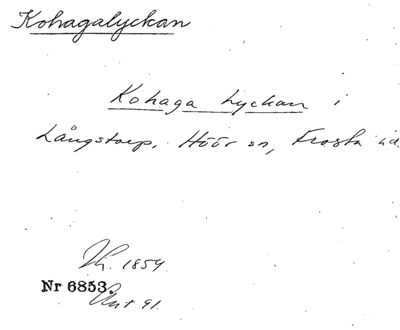 Kohagalyckan
Kohaga Lyckan i
Långstorp, Höör sn, Frosta hd.
Nr 6853.